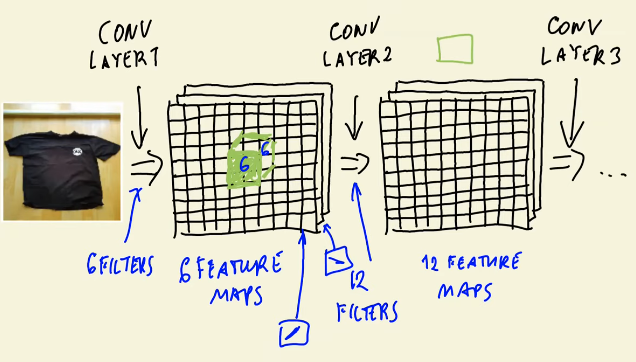 CONV
LAYER1
CONV
LAYER2
CONV
LAYER3
6
6
...
6 FILTERS
6 FEATURE
MAPS
12
FILTERS
12 FEATURE
MAPS